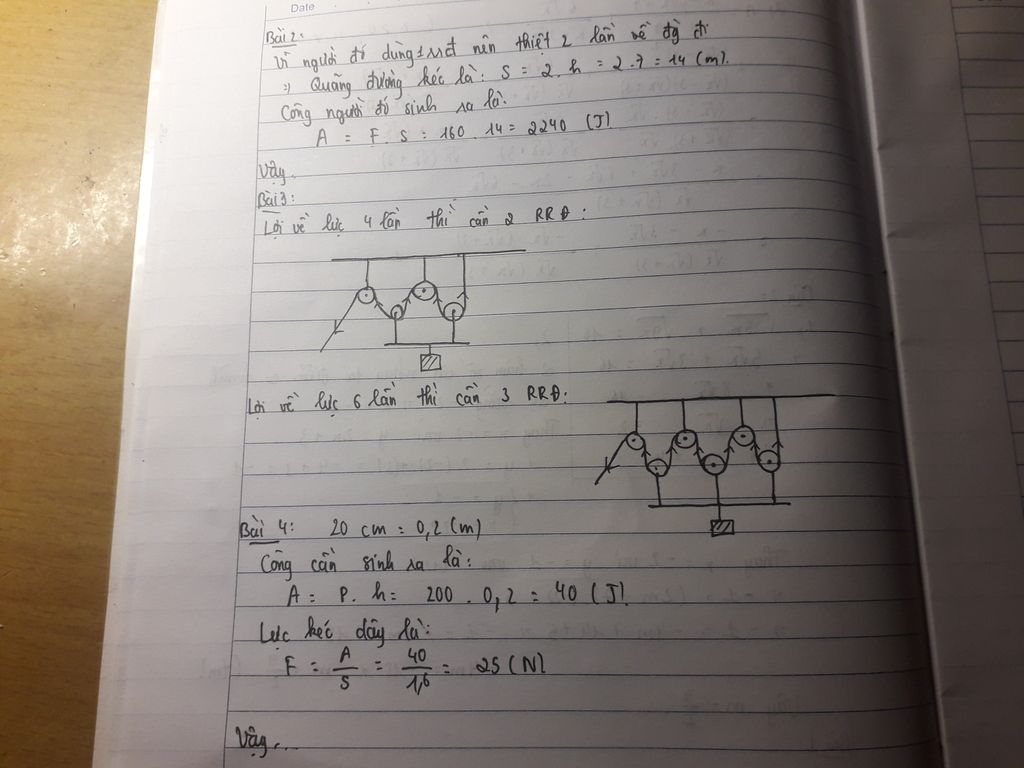 Date
Bài 2:
Vì người đó dùng 1 RRĐ nên thiệt 2 lần về đg đi
=) Quãng đường kéo là: S = 2. h = 2.7 = 14 (m).
Công người đó sinh ra là:
A = F. S = 160. 14 = 2240 (J)
Vậy...
Bài 3:
Lợi về lực 4 lần thì cần 2 RRĐ:
Lợi về lực 6 lần thì cần 3 RRĐ:
Bài 4: 20 cm = 0,2 (m)
Công cần sinh ra là:
A = P. h = 200. 0,2 = 40 (J).
Lực kéo dây là:
F = A/S = 40/1,6 = 25 (N)
Vậy....